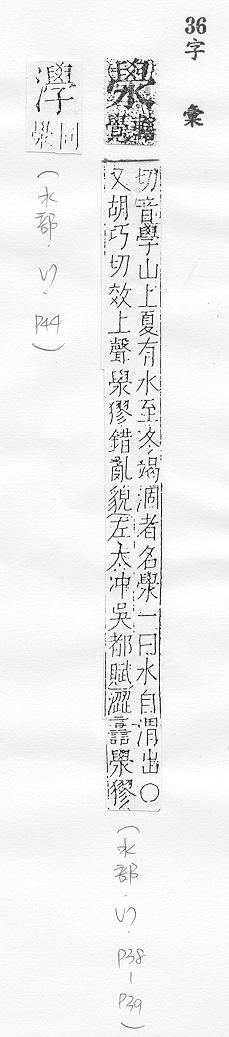 36
字 彙
澩
轄覺
切音學山上夏有水至冬竭涸者名澩一曰水自渭出○
又胡巧切效上聲澩㺒錯亂貌左太冲吳都賦澀譶澩㺒
(水部.巳.P38-P39)
㶅
同澩
(水部.巳.P44)